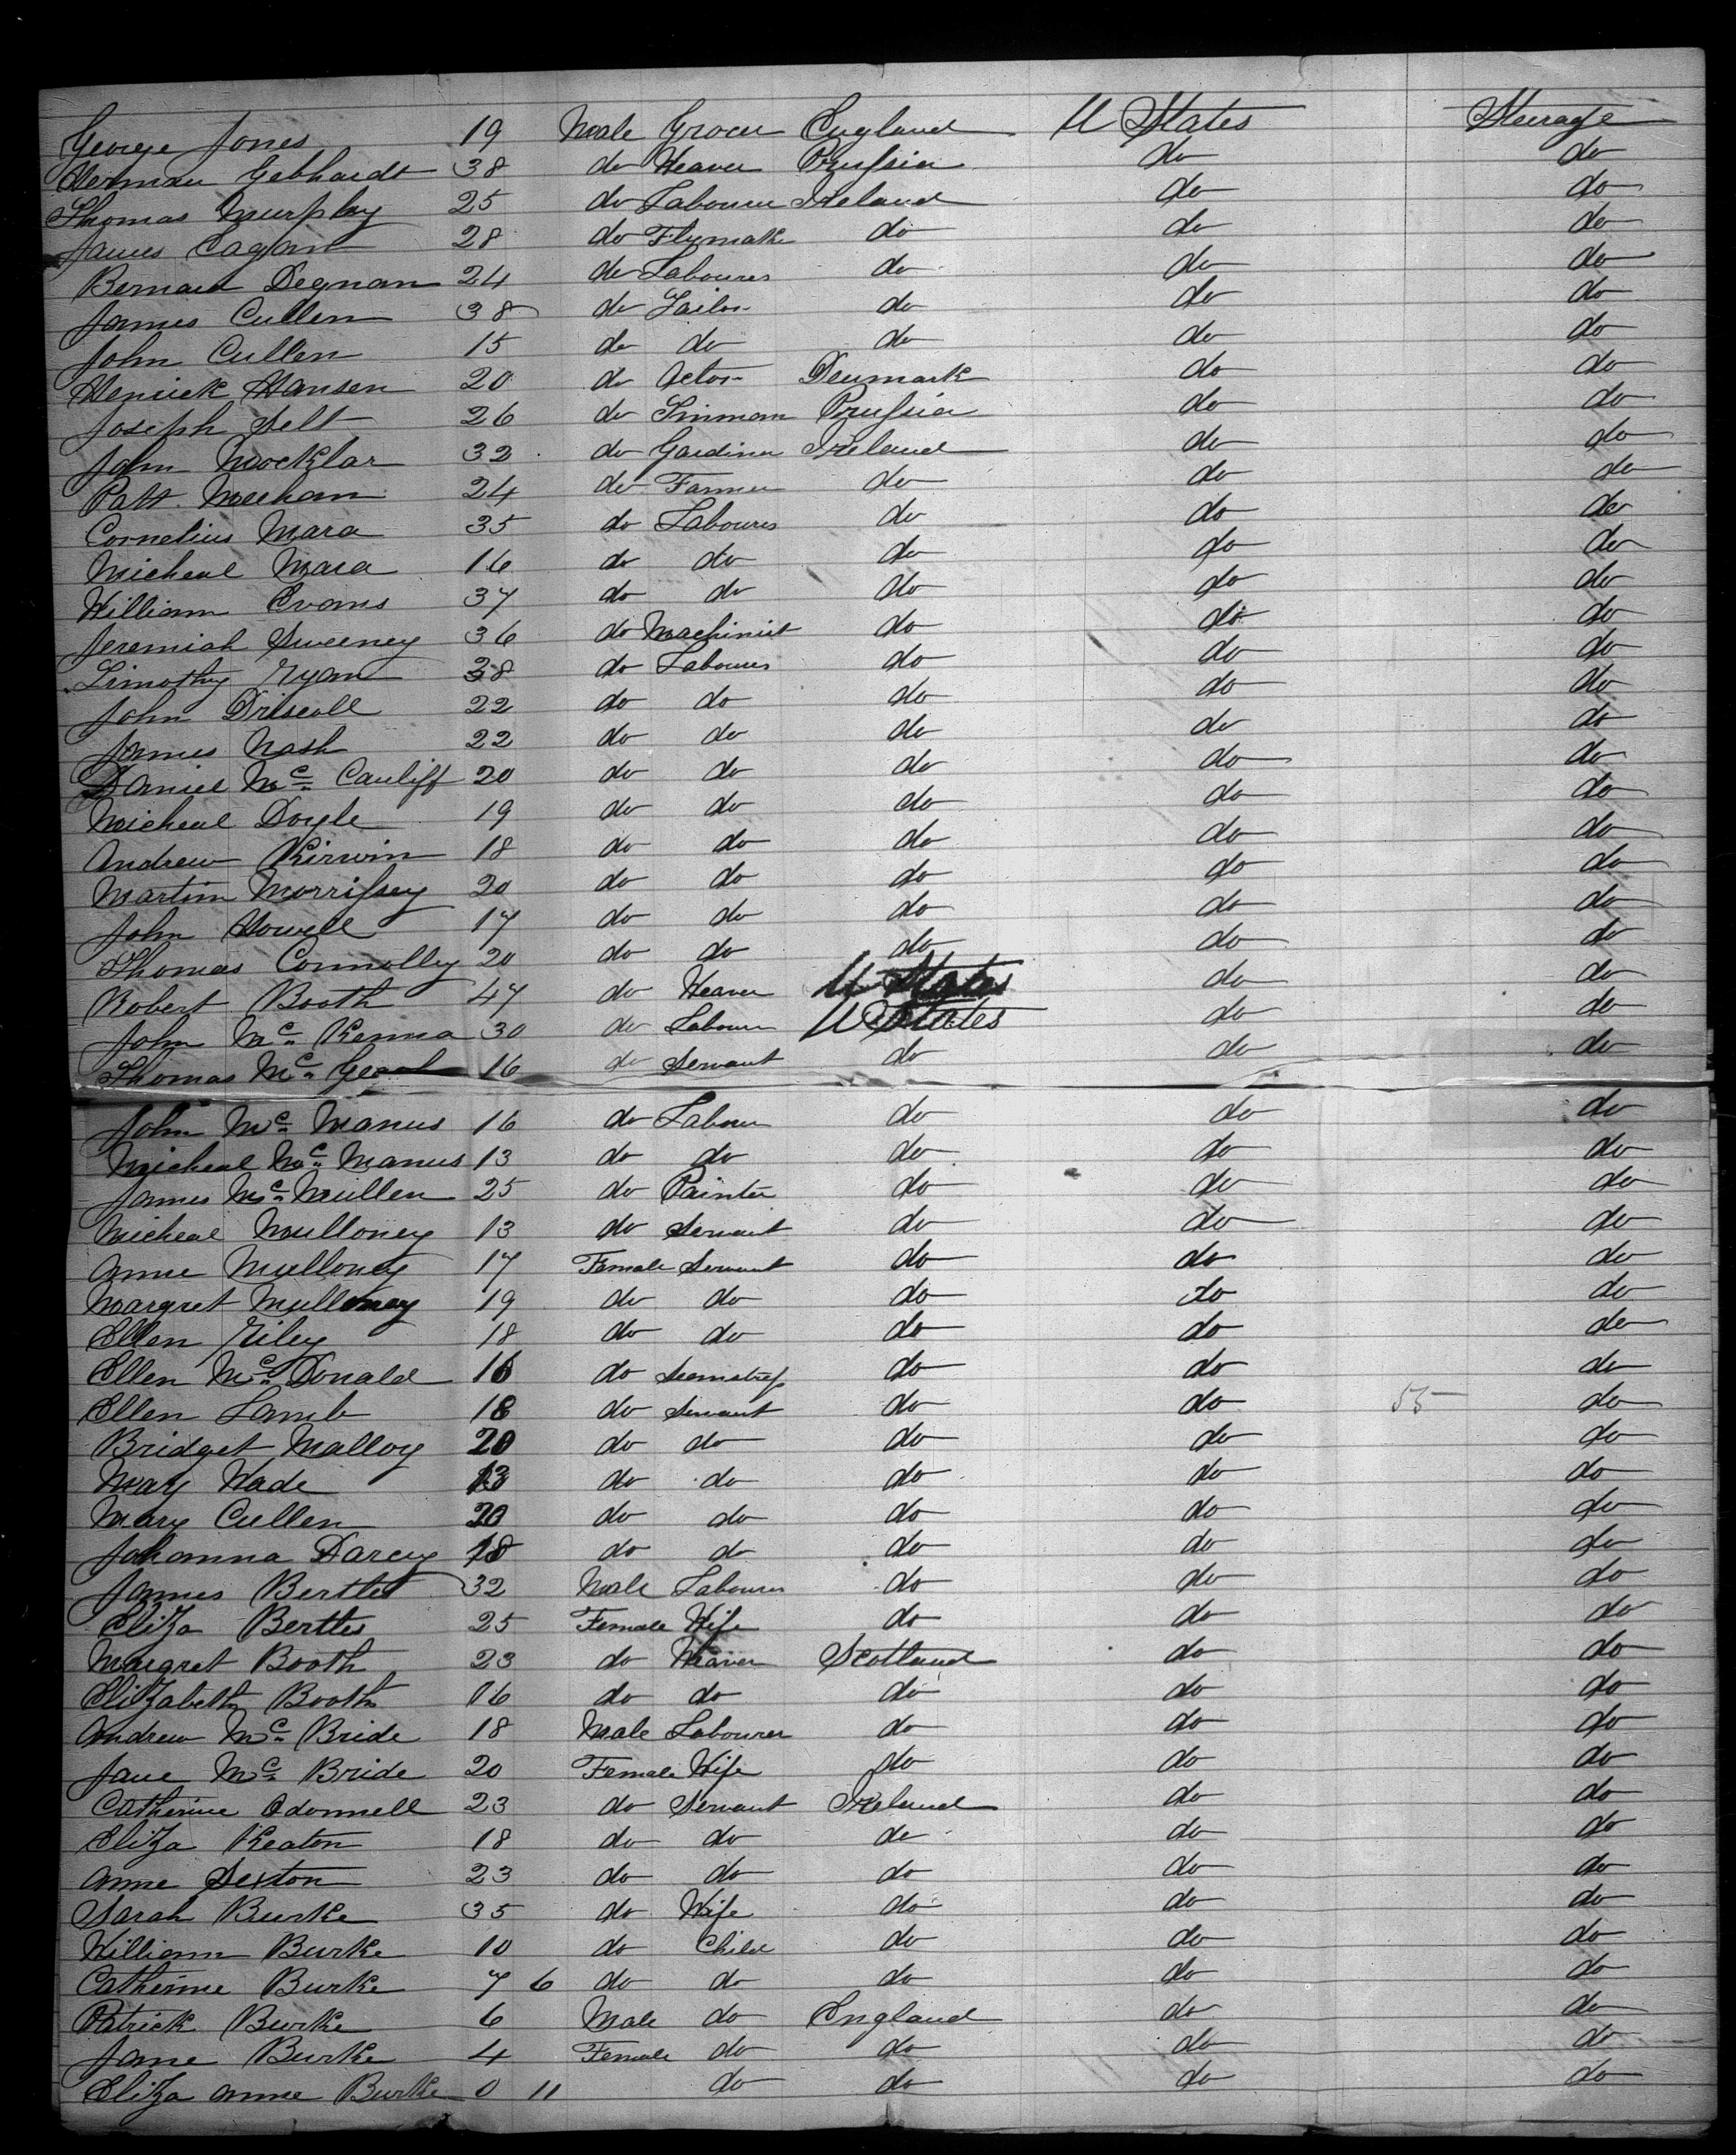 George Jones 19 Male Grocer England U States Steerage
Herman Gebhardt 38 do Weaver Prussia do do
Thomas Murphy 25 do Labourer Ireland do do
James Eagan 28 do do do do
Bernard Degnan 24 do Labourer do do do
James Cullen 38 do Tailor do do do
John Cullen 15 do do do do do
Henrick Hansen 20 do Actor Denmark do do
Joseph Selt 26 do Tinman Prussia do do
John Mocklar 32 do Gardiner Ireland do do
Patt Meehan 24 do Farmer do do do
Cornelius Mara 35 do Labourer do do do
Micheal Mara 16 do do do do do
William Evans 37 do do do do do
Jeremiah Sweeney 36 do Machinist do do do
Timothy Ryan 38 do Labourer do do do
John Driscoll 22 do do do do do
James Nash 22 do do do do do
Daniel Mc Cauliff 20 do do do do do
Micheal Doyle 19 do do do do do
Andrew Kirwin 18 do do do do do
Martin Morrissey 20 do do do do do
John Howell 17 do do do do do
Thomas Connolley 20 do do do do do
Robert Booth 47 do Weaver U States do do
John Mc Kenna 30 do Labour U States do do
Thomas Mc 16 do Servant do do do
John Mc Manus 16 do Labour do do do
Micheal Mc Manus 13 do do do do do
James Mc Mullen 25 do Painter do do do
Micheal Mulloney 13 do Servant do do do
Anne Mulloney 17 Female Servant do do do
Margret Mulloney 19 do do do do do
Ellen Riley 18 do do do do do
Ellen Mc Donald 16 do Seamstress do do do
Ellen Lamb 18 do Servant do do 55 do
Bridget Malloy 20 do do do do do
Mary Wade 13 do do do do do
Mary Cullen 20 do do do do do
Johanna Darcey 18 do do do do do
James Bertles 32 Male Labourer do do do
Eliza Bertles 25 Female Wife do do do
Margret Booth 23 do Weaver Scotland do do
Elizabeth Booth 16 do do do do do
Andrew Mc Bride 18 Male Labourer do do do
Jane Mc Bride 20 Female Wife do do do
Catherine Odonnell 23 do Servant Ireland do do
Eliza Keaton 18 do do do do do
Anne Sexton 23 do do do do do
Sarah Burke 35 do Wife do do do
William Burke 10 do Child do do do
Catherine Burke 7 6 do do do do do
Patrick Burke 6 Male do England do do
Jane Burke 4 Female do do do do
Eliza Anne Burke 0 11 do do do do